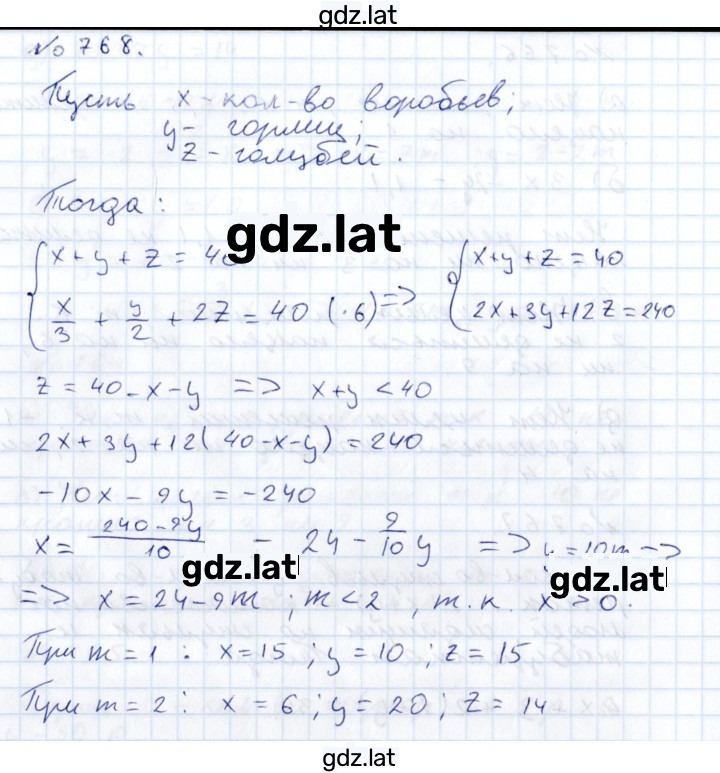 gdz.lat
№ 768.
Пусть x - кол-во воробьев;
y - горлиц;
z - голубей.
Тогда:
gdz.lat
{ x + y + z = 40
{ x/3 + y/2 + 2z = 40 (·6) =>
{ x+y+z = 40
{ 2x+3y+12z = 240
z = 40-x-y => x+y < 40
2x + 3y + 12( 40-x-y) = 240
-10x - 9y = -240
x = (240-9y)/10 = 24 - 9/10 y =>
gdz.lat
gdz.lat
=> x = 24-9m ; m < 2 , т.к. x > 0.
При m = 1 : x = 15 ; y = 10 ; z = 15
При m = 2 : x = 6 ; y = 20 ; z = 14
gdz.lat